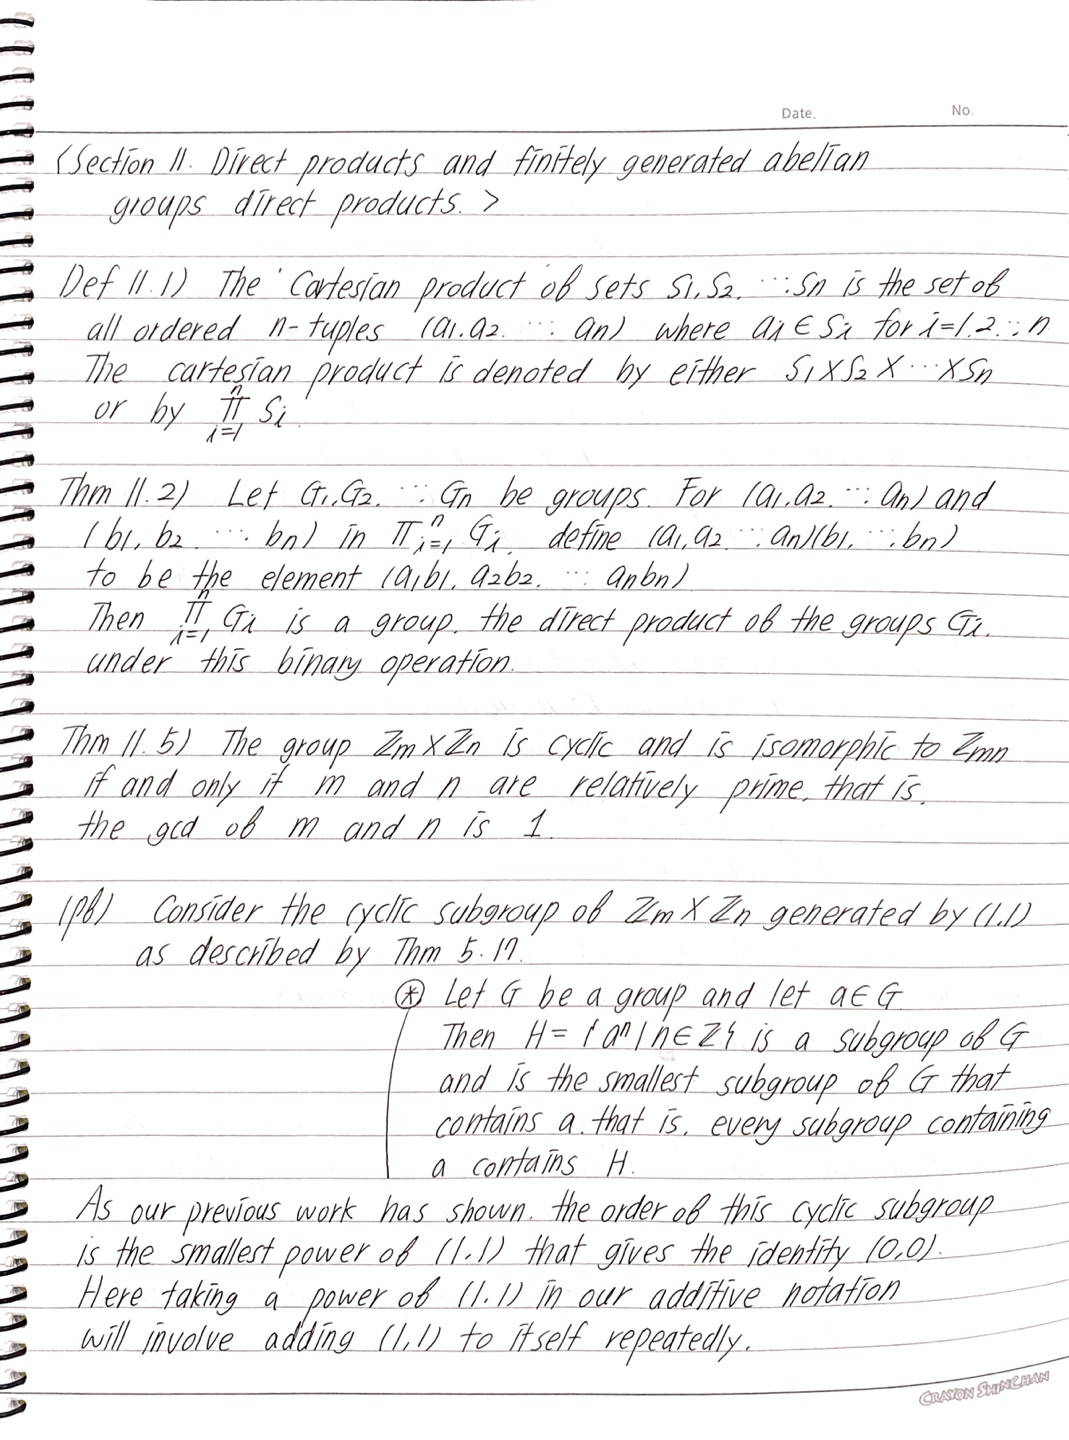 Date. No.
<Section 11. Direct products and finitely generated abelian
groups direct products. >
Def 11.1) The Cartesian product of sets S1, S2, ⋯, Sn is the set of
all ordered n-tuples (a1, a2, ⋯, an) where ai ∈ Si for i=1, 2, ⋯, n
The cartesian product is denoted by either S1 × S2 × ⋯ × Sn
or by ∏_{i=1}^{n} Si.
Thm 11.2) Let G1, G2, ⋯, Gn be groups. For (a1, a2, ⋯, an) and
(b1, b2, ⋯, bn) in ∏_{i=1}^{n} Gi, define (a1, a2, ⋯, an)(b1, ⋯, bn)
to be the element (a1b1, a2b2, ⋯, anbn)
Then ∏_{i=1}^{n} Gi is a group, the direct product of the groups Gi,
under this binary operation.
Thm 11.5) The group ℤm × ℤn is cyclic and is isomorphic to ℤmn
if and only if m and n are relatively prime, that is,
the gcd of m and n is 1.
(pf) Consider the cyclic subgroup of ℤm × ℤn generated by (1,1)
as described by Thm 5.17.
⊛ Let G be a group and let a ∈ G
Then H = {aⁿ | n ∈ ℤ} is a subgroup of G
and is the smallest subgroup of G that
contains a, that is, every subgroup containing
a contains H.
As our previous work has shown, the order of this cyclic subgroup
is the smallest power of (1,1) that gives the identity (0,0).
Here taking a power of (1,1) in our additive notation
will involve adding (1,1) to itself repeatedly.
CRAYON SHINCHAN